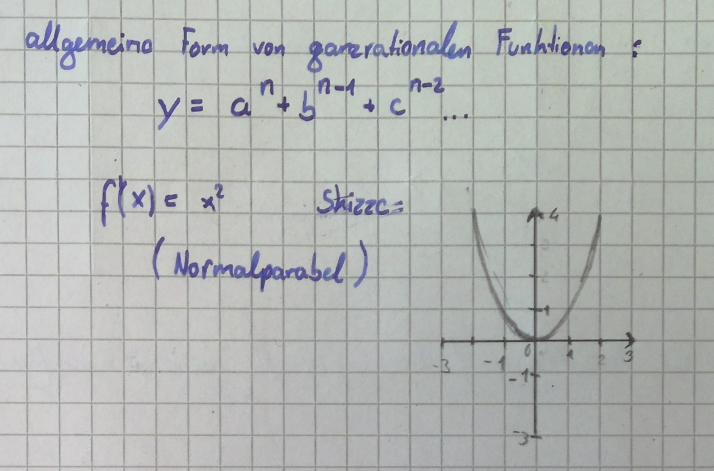 allgemeine Form von ganzrationalen Funktionen :
y = a^n + b^(n-1) + c^(n-2) ...
f(x) = x² Skizze=
(Normalparabel)
4
1
-3 -1 0 1 2 3
-1
-3